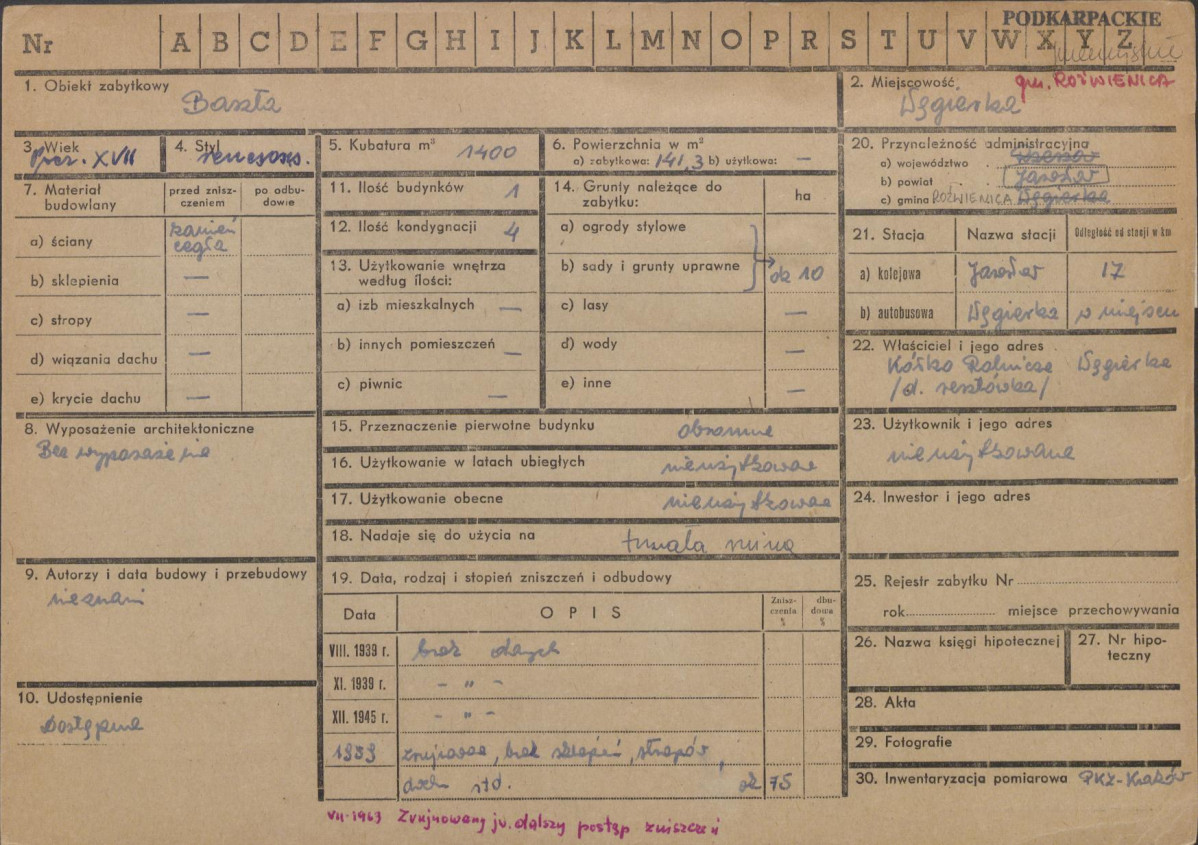 PODKARPACKIE
Nr A B C D E F G H I J K L M N O P R S T U V W X Y Z
1. Obiekt zabytkowy
Baszta
2. Miejscowość gm. ROŹWIENICA
Węgierka
3. Wiek
XVII
4. Styl
renesans.
5. Kubatura m³ 1400
6. Powierzchnia w m²
a) zabytkowa: 141,3 b) użytkowa: —
7. Materiał budowlany
przed zniszczeniem
po odbudowie
a) ściany kamień cegła
b) sklepienia —
c) stropy —
d) wiązania dachu —
e) krycie dachu —
8. Wyposażenie architektoniczne
Bez wyposażenia
9. Autorzy i data budowy i przebudowy
nieznani
10. Udostępnienie
Dostępna
11. Ilość budynków 1
12. Ilość kondygnacji 4
13. Użytkowanie wnętrza
według ilości:
a) izb mieszkalnych —
b) innych pomieszczeń —
c) piwnic —
14. Grunty należące do
zabytku:
ha
a) ogrody stylowe
b) sady i grunty uprawne ok 10
c) lasy —
d) wody —
e) inne —
15. Przeznaczenie pierwotne budynku obronne
16. Użytkowanie w latach ubiegłych nieużytkowane
17. Użytkowanie obecne nieużytkowane
18. Nadaje się do użycia na trwała ruina
19. Data, rodzaj i stopień zniszczeń i odbudowy
Data OPIS Zniszczenia % dbudowa %
VIII. 1939 r. brak danych
XI. 1939 r. – " –
XII. 1945 r. – " –
1959 zrujnowana, brak sklepień, stropów,
dachu itd. ok 75
VII-1963 Zrujnowany jw. dalszy postęp zniszczeń
20. Przynależność administracyjna
a) województwo Rzeszów
b) powiat Jarosław
c) gmina ROŹWIENICA Węgierka
21. Stacja Nazwa stacji Odległość od stacji w km
a) kolejowa Jarosław 17
b) autobusowa Węgierka w miejscu
22. Właściciel i jego adres
Kółko Rolnicze Węgierka
/d. resztówka/
23. Użytkownik i jego adres
nieużytkowana
24. Inwestor i jego adres
25. Rejestr zabytku Nr
rok miejsce przechowywania
26. Nazwa księgi hipotecznej
27. Nr hipoteczny
28. Akta
29. Fotografie
30. Inwentaryzacja pomiarowa PKZ-Kraków